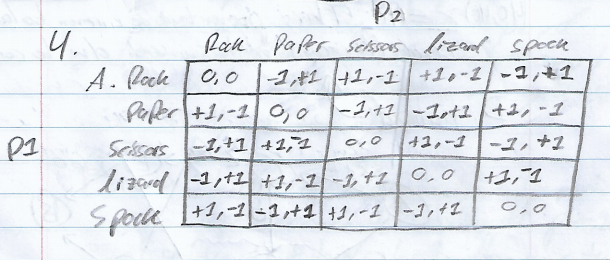 P2
4. Rock Paper Scissors lizard Spock
A. Rock 0,0 -1,+1 +1,-1 +1,-1 -1,+1
Paper +1,-1 0,0 -1,+1 -1,+1 +1,-1
P1 Scissors -1,+1 +1,-1 0,0 +1,-1 -1,+1
lizard -1,+1 +1,-1 -1,+1 0,0 +1,-1
Spock +1,-1 -1,+1 +1,-1 -1,+1 0,0